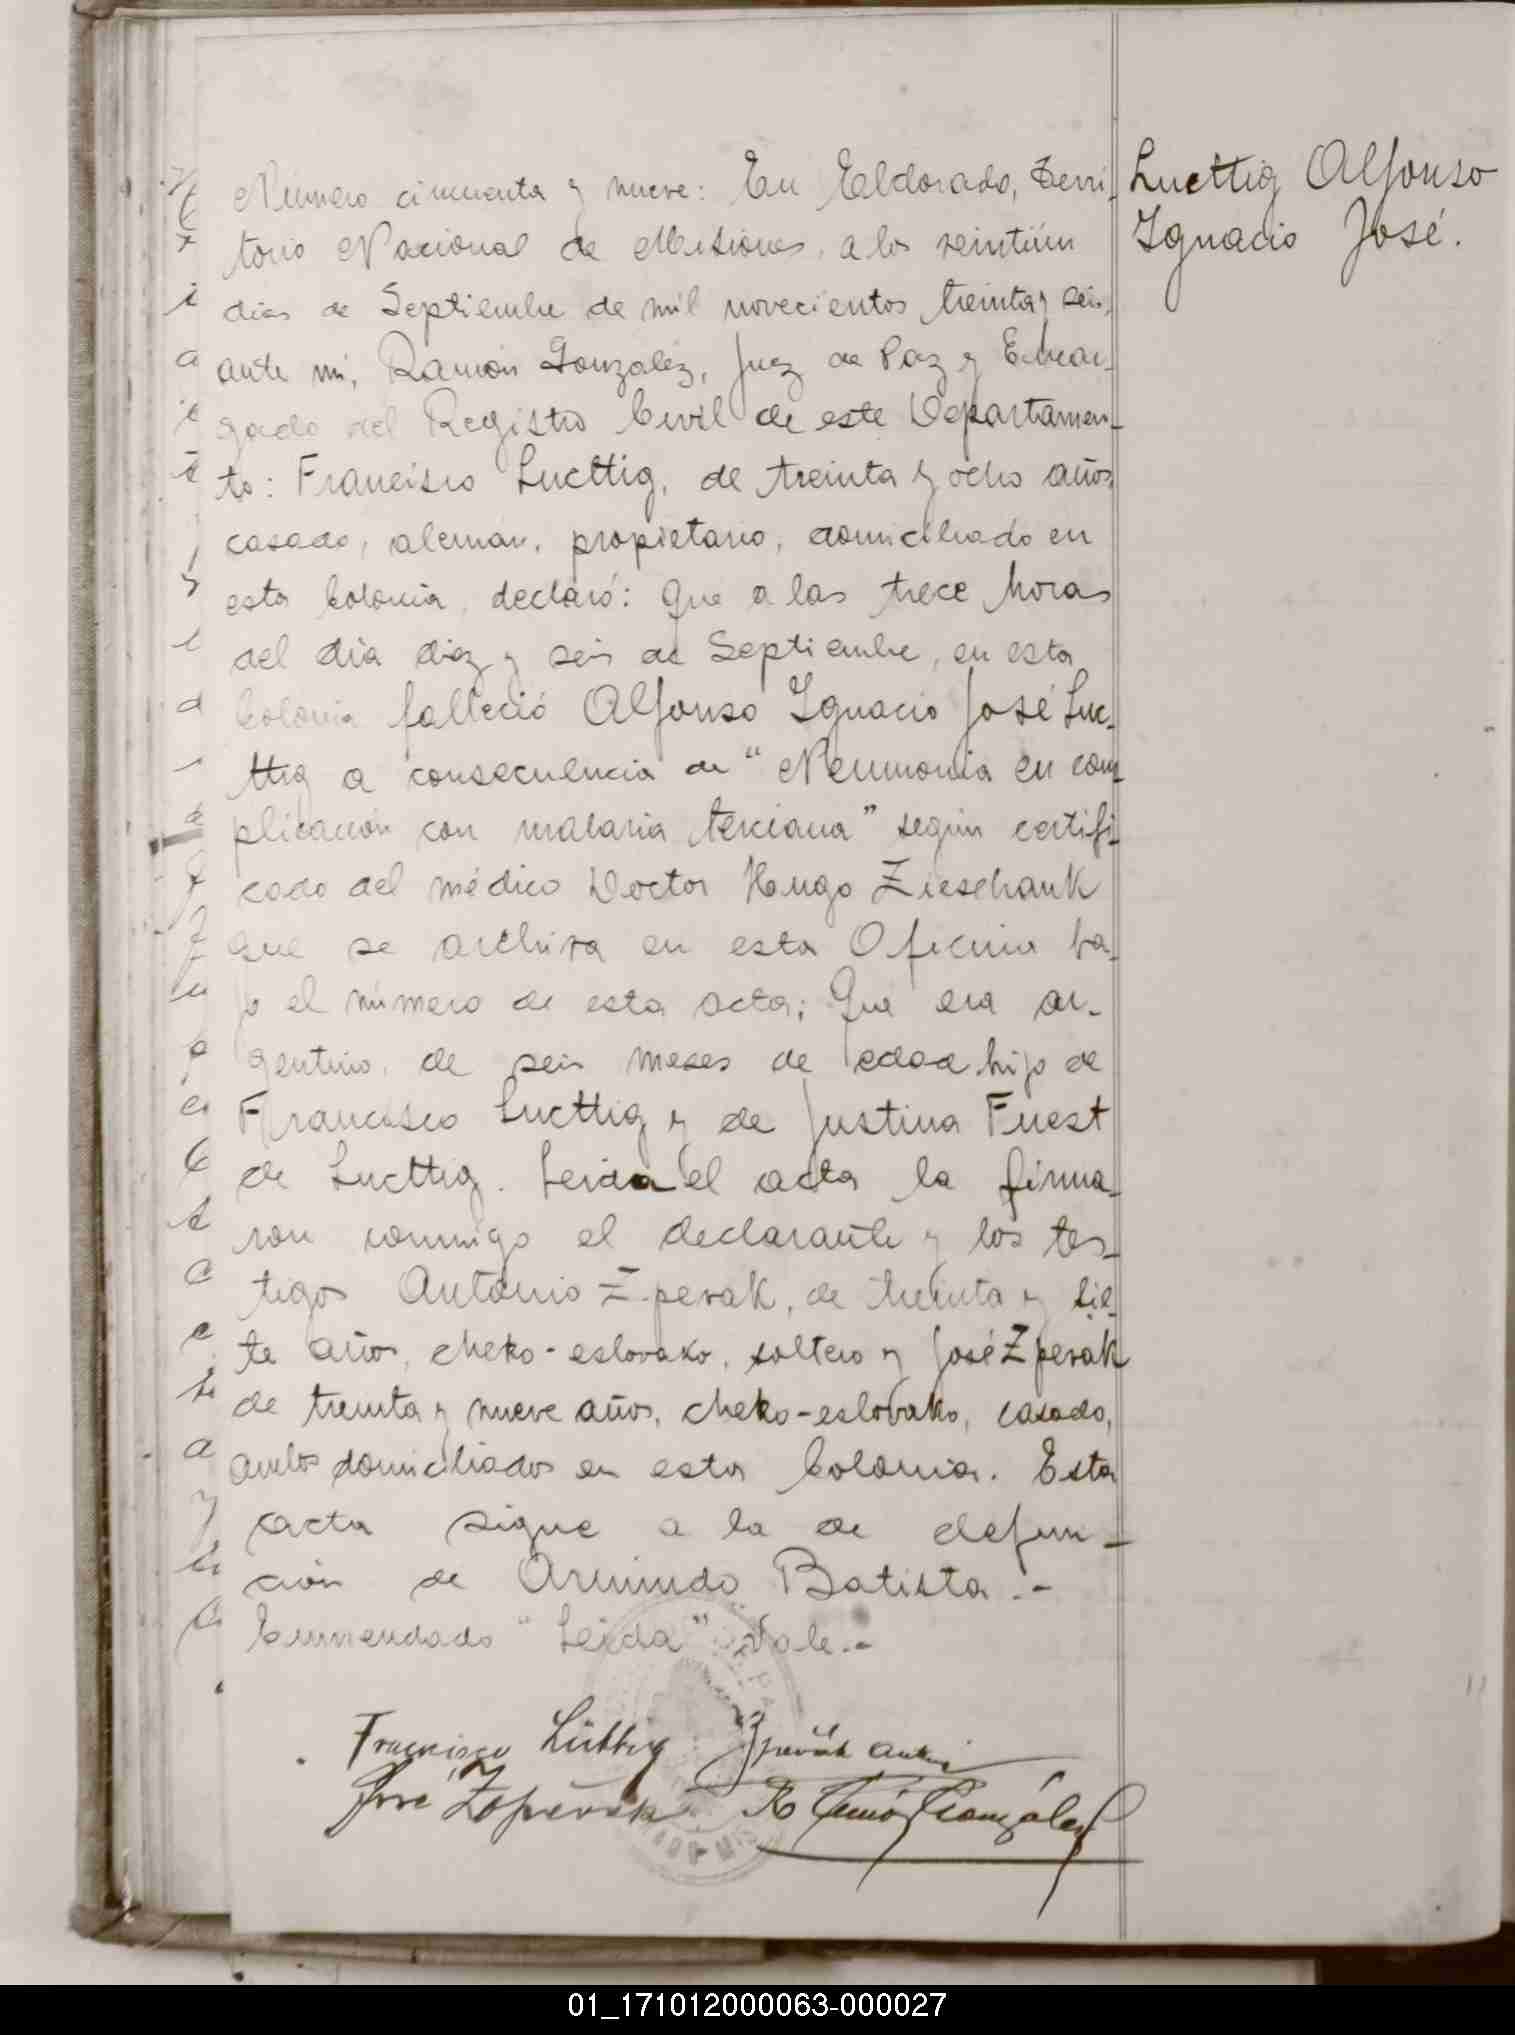 Luettig Alfonso
Ignacio José.
Numero cincuenta y nueve: En Eldorado, Terri-
torio Nacional de Misiones, a los veintiún
dias de Septiembre de mil novecientos treinta y seis,
ante mi, Ramón González, Juez de Paz y Encar-
gado del Registro Civil de este Departamen-
to: Francisco Luettig, de treinta y ocho años,
casado, alemán, propietario, domiciliado en
esta Colonia, declaró: Que a las trece horas
del dia diez y seis de Septiembre, en esta
Colonia falleció Alfonso Ignacio José Lue-
ttig a consecuencia de "Neumonia en com-
plicación con malaria terciana" según certifi-
cado del médico Doctor Hugo Zieschank
que se archiva en esta Oficina ba-
jo el número de esta acta; Que era ar-
gentino, de seis meses de edad hijo de
Francisco Luettig y de Justina Fuest
de Luettig. Leida el acta la firma-
ron conmigo el declarante y los tes-
tigos Antonio Zperak, de treinta y sie-
te años, cheko-eslovako, soltero y José Zperak
de treinta y nueve años, cheko-eslovako, casado,
ambos domiciliados en esta Colonia. Esta
acta sigue a la de defun-
ción de Armindo Batista.-
Enmendado "Leida" Vale.-
Francisco Lüttig
José
Ramón González
01_171012000063-000027